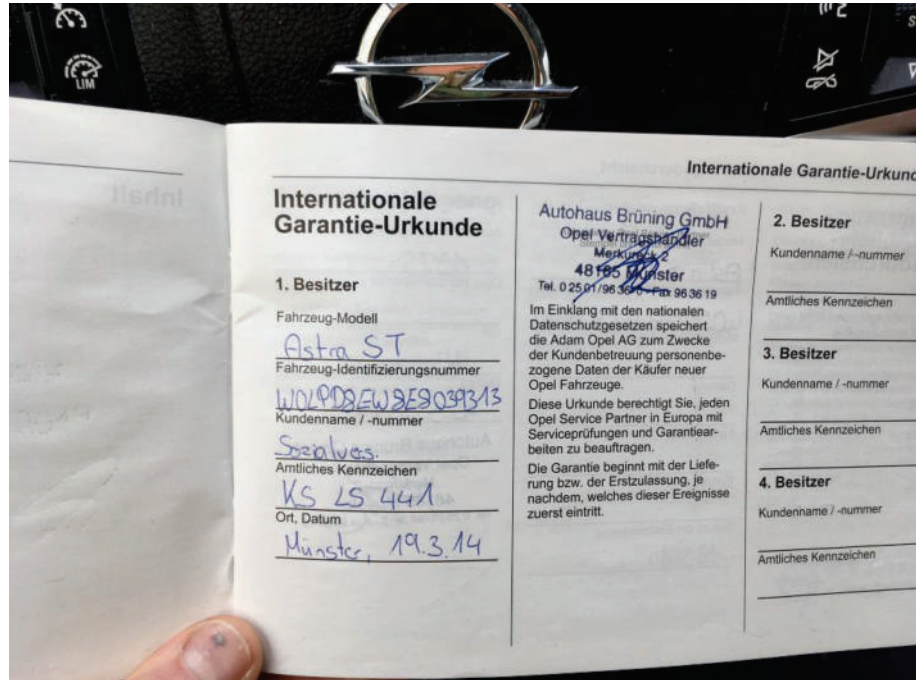 LIM
Internationale Garantie-Urkund
Inhalt
Internationale
Garantie-Urkunde
1. Besitzer
Fahrzeug-Modell
Astra ST
Fahrzeug-Identifizierungsnummer
W0LPD8EW8E8039313
Kundenname / -nummer
Sozialves.
Amtliches Kennzeichen
KS LS 441
Ort, Datum
Münster, 19.3.14
Autohaus Brüning GmbH
Opel Vertragshändler
Merkureck 2
48165 Münster
Tel. 0 25 01/96 36-0 - Fax 96 36 19
Im Einklang mit den nationalen
Datenschutzgesetzen speichert
die Adam Opel AG zum Zwecke
der Kundenbetreuung personenbe-
zogene Daten der Käufer neuer
Opel Fahrzeuge.
Diese Urkunde berechtigt Sie, jeden
Opel Service Partner in Europa mit
Serviceprüfungen und Garantiear-
beiten zu beauftragen.
Die Garantie beginnt mit der Liefe-
rung bzw. der Erstzulassung, je
nachdem, welches dieser Ereignisse
zuerst eintritt.
2. Besitzer
Kundenname /-nummer
Amtliches Kennzeichen
3. Besitzer
Kundenname / -nummer
Amtliches Kennzeichen
4. Besitzer
Kundenname / -nummer
Amtliches Kennzeichen